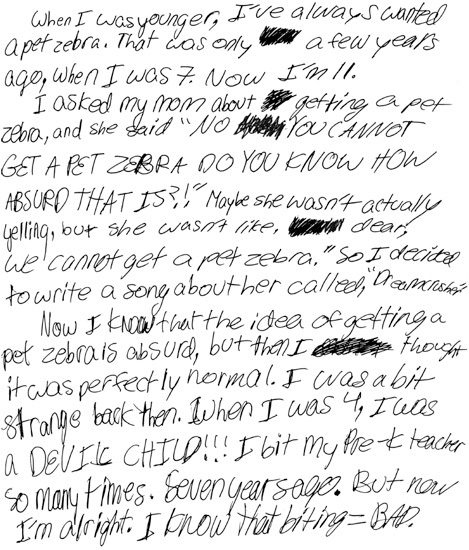 When I was younger, I've always wanted
a pet zebra. That was only a few years
ago, when I was 7. Now I'm 11.
I asked my mom about getting a pet
zebra, and she said "NO YOU CANNOT
GET A PET ZEBRA DO YOU KNOW HOW
ABSURD THAT IS?!" Maybe she wasn't actually
yelling, but she wasn't like, dear,
we cannot get a pet zebra." So I decided
to write a song about her called, "Dreamcrusher"
Now I know that the idea of getting a
pet zebra is absurd, but then I thought
it was perfectly normal. I was a bit
strange back then. When I was 4, I was
a DEVIL CHILD!!! I bit my Pre-K teacher
so many times. Seven years ago. But now
I'm alright. I know that biting = BAD.